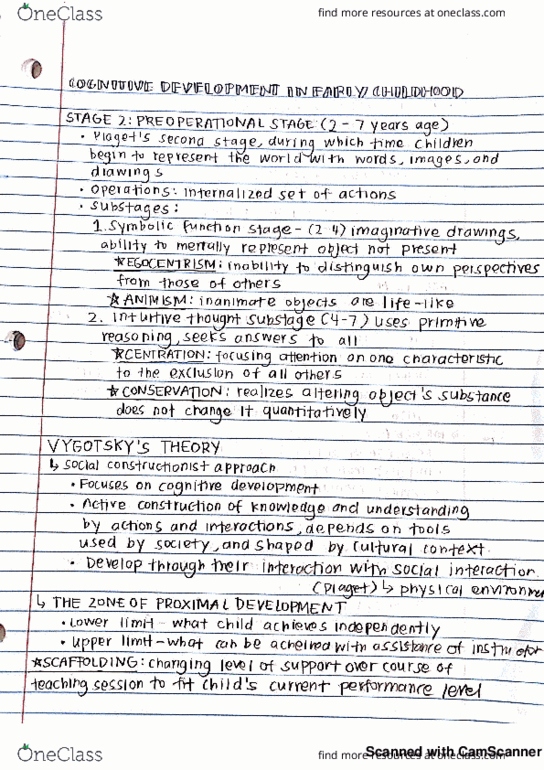 OneClass
find more resources at oneclass.com
COGNITIVE DEVELOPMENT IN EARLY CHILDHOOD
STAGE 2: PREOPERATIONAL STAGE (2 - 7 years age)
• Piaget's second stage, during which time children
begin to represent the world with words, images, and
drawings
• operations: internalized set of actions
• substages:
1. Symbolic function stage - (2 4) imaginative drawings,
ability to mentally represent object not present
★EGOCENTRISM: inability to distinguish own perspectives
from those of others
★ANIMISM: inanimate objects are life-like
2. Intuitive thought substage (4-7) uses primitive
reasoning, seeks answers to all
★CENTRATION: focusing attention on one characteristic
to the exclusion of all others
★CONSERVATION: realizes altering object's substance
does not change it quantitatively
VYGOTSKY'S THEORY
↳ social constructionist approach
• Focuses on cognitive development
• Active construction of knowledge and understanding
by actions and interactions, depends on tools
used by society, and shaped by cultural context.
• Develop through their interaction with social interaction.
(Piaget) ↳ physical environmen
↳ THE ZONE OF PROXIMAL DEVELOPMENT
• Lower limit - what child achieves independently
• upper limit - what can be acheived with assistance of instructor
★SCAFFOLDING: changing level of support over course of
teaching session to fit child's current performance level
Scanned with CamScanner
OneClass
find more resources at oneclass.com